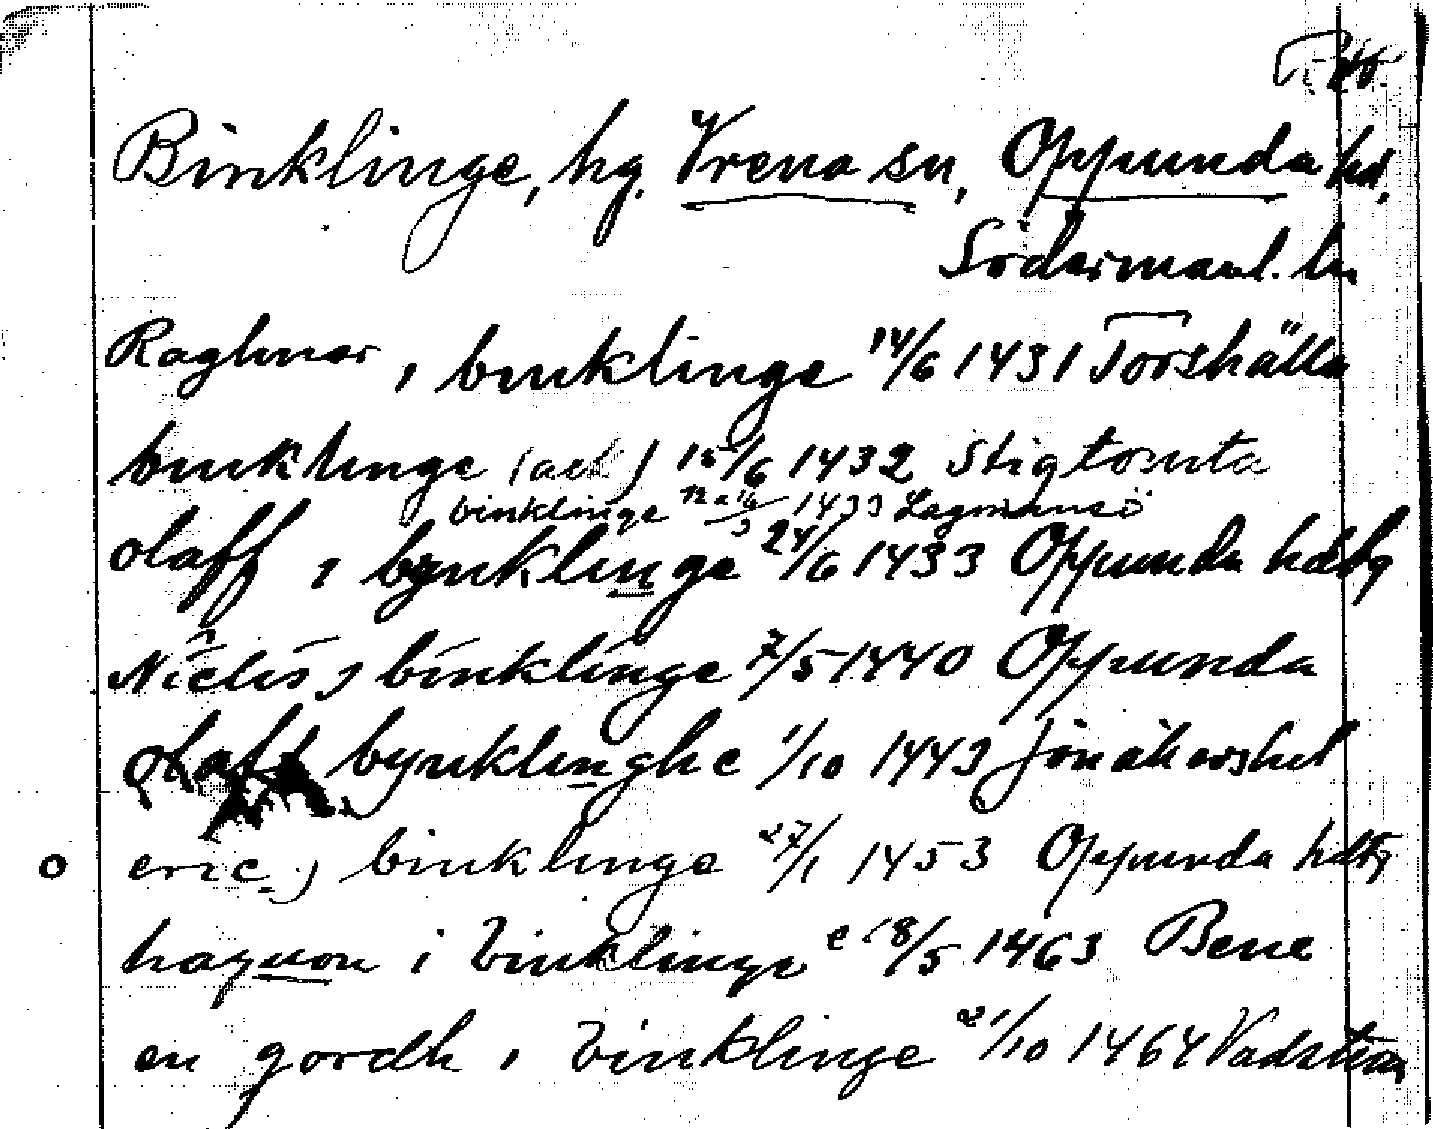 Binklinge, hg. Vrena sn, Oppunda hd,
Söderманl. ln
Raghnar, i binklinge 14/6 1431 Torshälla
binklinge (ack) 15/6 1432 Stigtomta
binklinge 1433 Lagmansö
olaff i bynklinge 24/6 1433 Oppunda hdtg
Niclis j binklinge 7/5 1440 Oppunda
olaff bynklinghe 1/10 1443 Jönåkershd
o eric j binklinge 27/1 1453 Oppunda hdtg
haquon i binklinge e 18/5 1463 Bene
en gordh i binklinge 21/10 1464 Vadstena